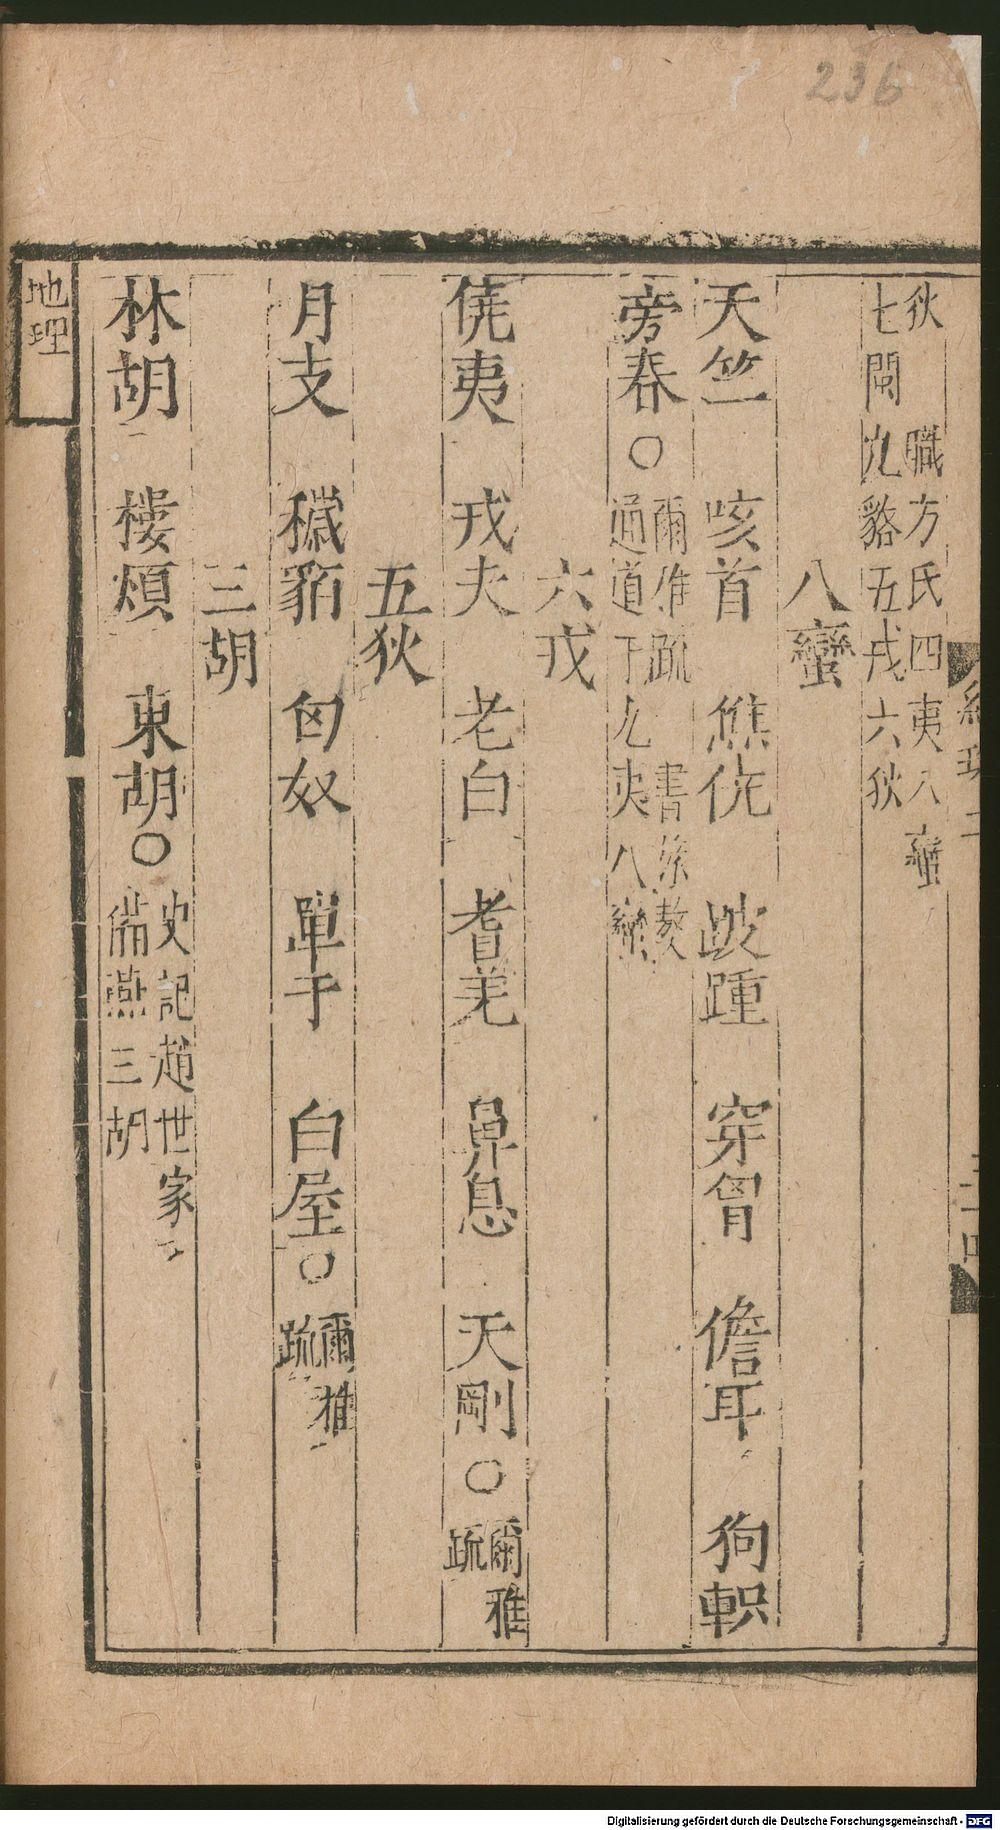 236
狄 職方氏四夷八蠻
七閩九貉五戎六狄
八蠻
天竺 咳首 僬侥 跛踵 穿胷 儋耳 狗軹
旁春○爾雅疏 書旅獒
通道于九夷八蠻
六戎
侥夷 戎夫 老白 耆羌 鼻息 天剛○爾雅
疏
五狄
月支 穢貊 匈奴 單于 白屋○爾雅
疏
三胡
林胡 樓煩 東胡○史記趙世家
備燕三胡
地理
Digitalisierung gefördert durch die Deutsche Forschungsgemeinschaft - DFG